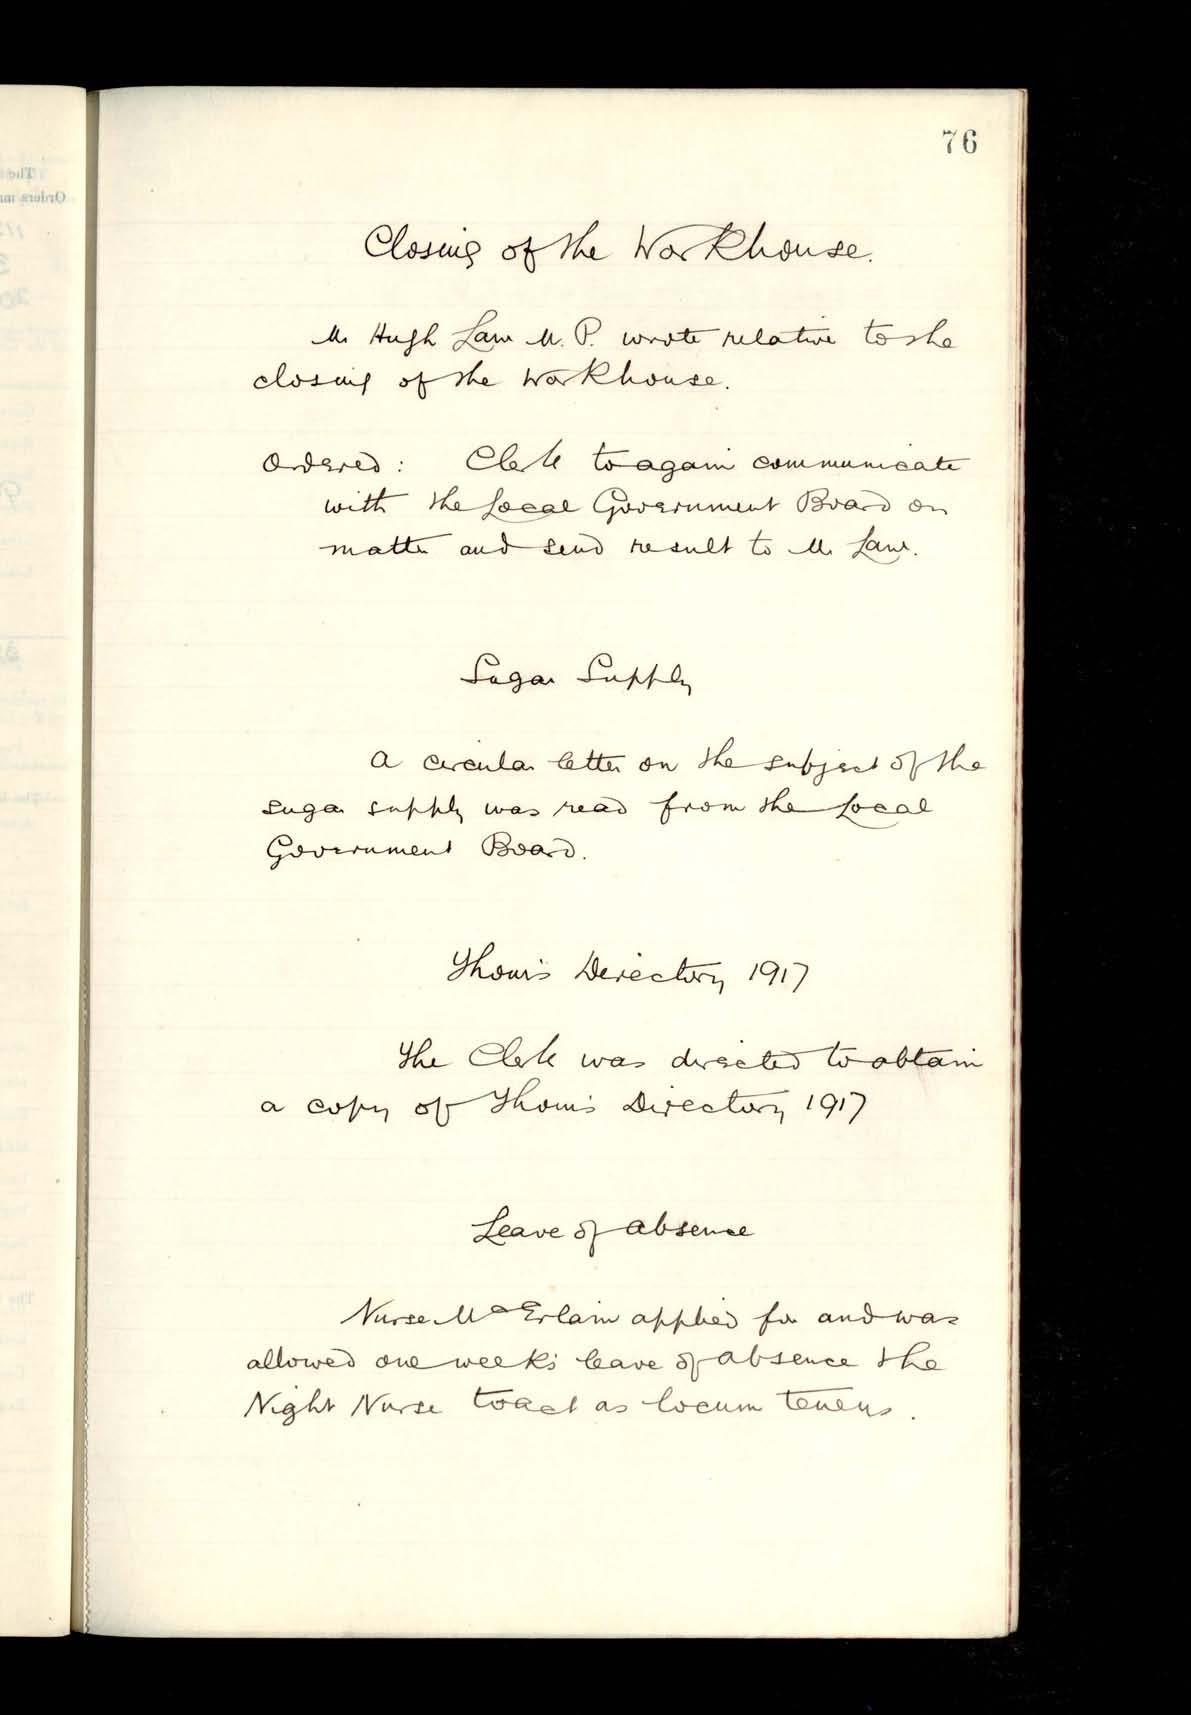 76
Closing of the Workhouse.
Mr Hugh Law M.P. wrote relative to the
closing of the Workhouse.
Ordered: Clerk to again communicate
with the Local Government Board on
matter and send result to Mr Law.
Sugar Supply
A circular letter on the subject of the
sugar supply was read from the Local
Government Board.
Thom's Directory 1917
The Clerk was directed to obtain
a copy of Thom's Directory 1917
Leave of absence
Nurse McErlain applied for and was
allowed one week's leave of absence the
Night Nurse to act as locum tenens.